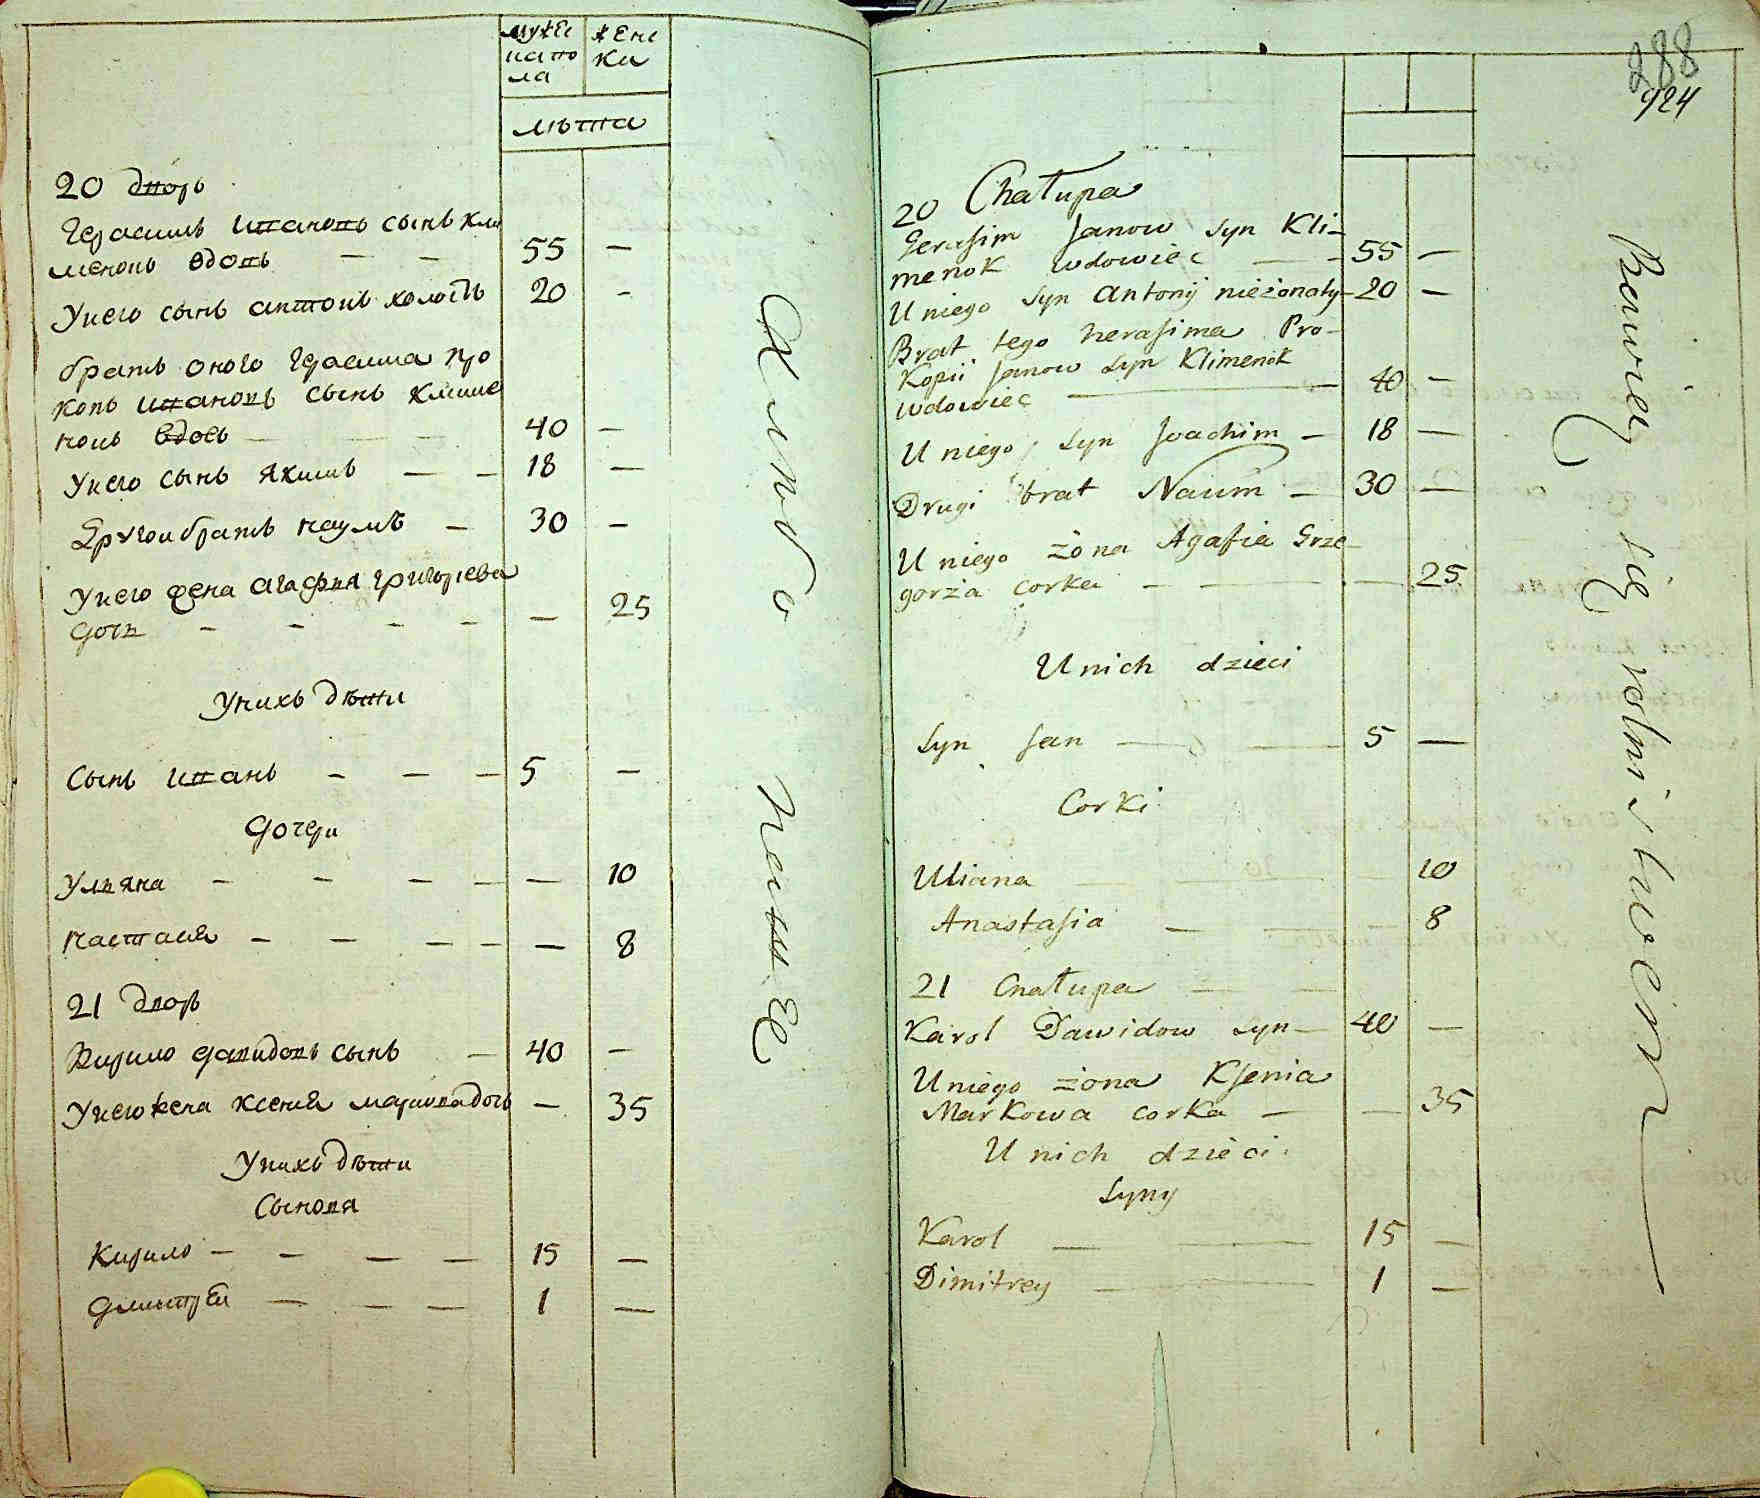 мужеска пола
женска
лѣта
20 дворъ
Герасимъ ивановъ сынъ кли
меновъ вдовъ — — 55 —
У него сынъ антонъ холостъ 20 -
братъ оного Герасима про
копъ ивановъ сынъ климе
новъ вдовъ — 40 —
У него сынъ якимъ — — 18 —
Другои братъ наумъ — 30 —
У него жена агафия григорева
дочь - - - - — 25
У нихъ дѣти
Сынъ иванъ - — — 5 —
дочери
Ульяна - - - - — 10
настасия - - - - — 8
21 дворъ
Кирило давидовъ сынъ — 40 —
У него жена ксения маркова дочь — 35
У нихъ дѣти
Сыновя
Кирило — - — — 15 —
дмитреи — — — 1 —
288
924
20 Chałupa
Gerasim Janow Syn Kli-
menok wdowiec — 55 —
U niego Syn Antonij nieżonaty 20 —
Brat tego herasima Pro-
kopii Janow Syn Klimenok
wdowiec — 40 —
U niego Syn Joachim — 18 —
Drugi brat Naum — 30 —
U niego żona Agafia Grze
gorża corka — — — 25
U nich dzieci
Syn Jan — — 5 —
Corki
Uliana — — 10
Anastasia — — - 8
21 Chałupa — —
Karol Dawidow Syn — 40 —
U niego żona Ksenia
Markowa corka — — 35
U nich dzieci
Syny
Karol — — 15 —
Dimitrey — — 1 —
Bawię się rolnistwem